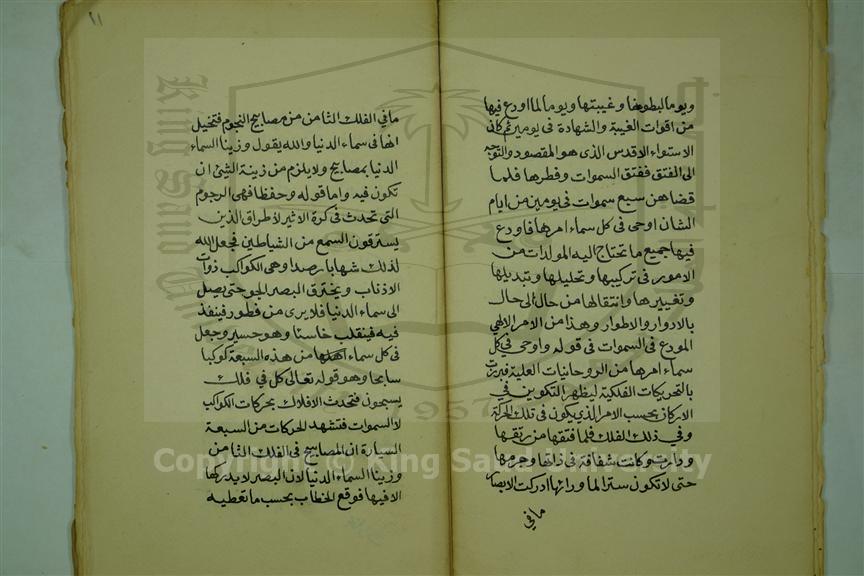 ويوما لبطونها وغيبتها ويوما لما اودع فيها
من اقوات الغيبة والشهادة فى يومين ثم كان
الاستواء الاقدس الذى هو المقصود والتوجه
الى الفتق ففتق السموات وفطرها فلما
قضاهن سبع سموات فى يومين من ايام
الشان اوحى فى كل سماء امرها فاودع
فيها جميع ما تحتاج اليه المولدات من
الامور فى تركيبها وتحليلها وتبديلها
وتغييرها وانتقالها من حال الى حال
بالادوار والاطوار وهذا من الامر الالهي
المودع فى السموات فى قوله واوحى فى كل
سماء امرها من الروحانيات العلية فبرزت
بالتحريكات الفلكية ليظهر التكوين في
الاركان بحسب الامر الذى يكون فى تلك الحركة
وفي ذلك الفلك فلما فتقها من رتقها
ودارت وكانت شفافة فى ذاتها وجرمها
حتى لا تكون سترا لما ورائها ادركت الابصار
مافي
١١
مافي الفلك الثامن من مصابيح النجوم فتخيل
انها فى سماء الدنيا والله يقول وزينا السماء
الدنيا بمصابيح ولا يلزم من زينة الشئ ان
تكون فيه واما قوله وحفظا فهى الرجوم
التى تحدث فى كرة الاثير لاطراق الذين
يسترقون السمع من الشياطين فجعل الله
لذلك شهابا رصدا وهى الكواكب ذوات
الاذناب ويخترق البصر الجو حتى يصل
الى سماء الدنيا فلا يرى من فطور فينفذ
فيه فينقلب خاسئا وهو حسير وجعل
فى كل سماء من هذه السبعة كوكبا
سابحا وهو قوله تعالى كل في فلك
يسبحون فتحدث الافلاك بحركات الكواكب
لا السموات فتشهد الحركات من السبعة
السيارة ان المصابيح فى الفلك الثامن
وزينا السماء الدنيا لان البصر لا يدركها
الا فيها فوقع الخطاب بحسب ما تعطيه
Copyright © King Saud University
King Saud
1957